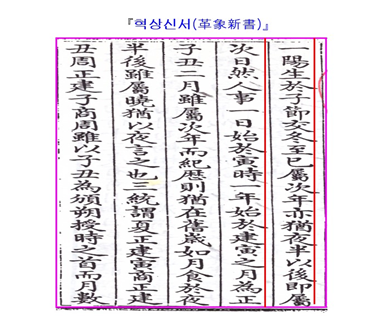 『혁상신서(革象新書)』
一陽生於子節交冬至已屬次年亦猶夜半以後即屬
次日然人事一日始於寅時一年始於建寅之月為正
子丑二月雖屬次年而紀歷則猶在舊歲如月食於夜
半後雖屬曉猶以夜言之也三統謂夏正建寅商正建
丑周正建子商周雖以子丑為頒朔授時之首而月數